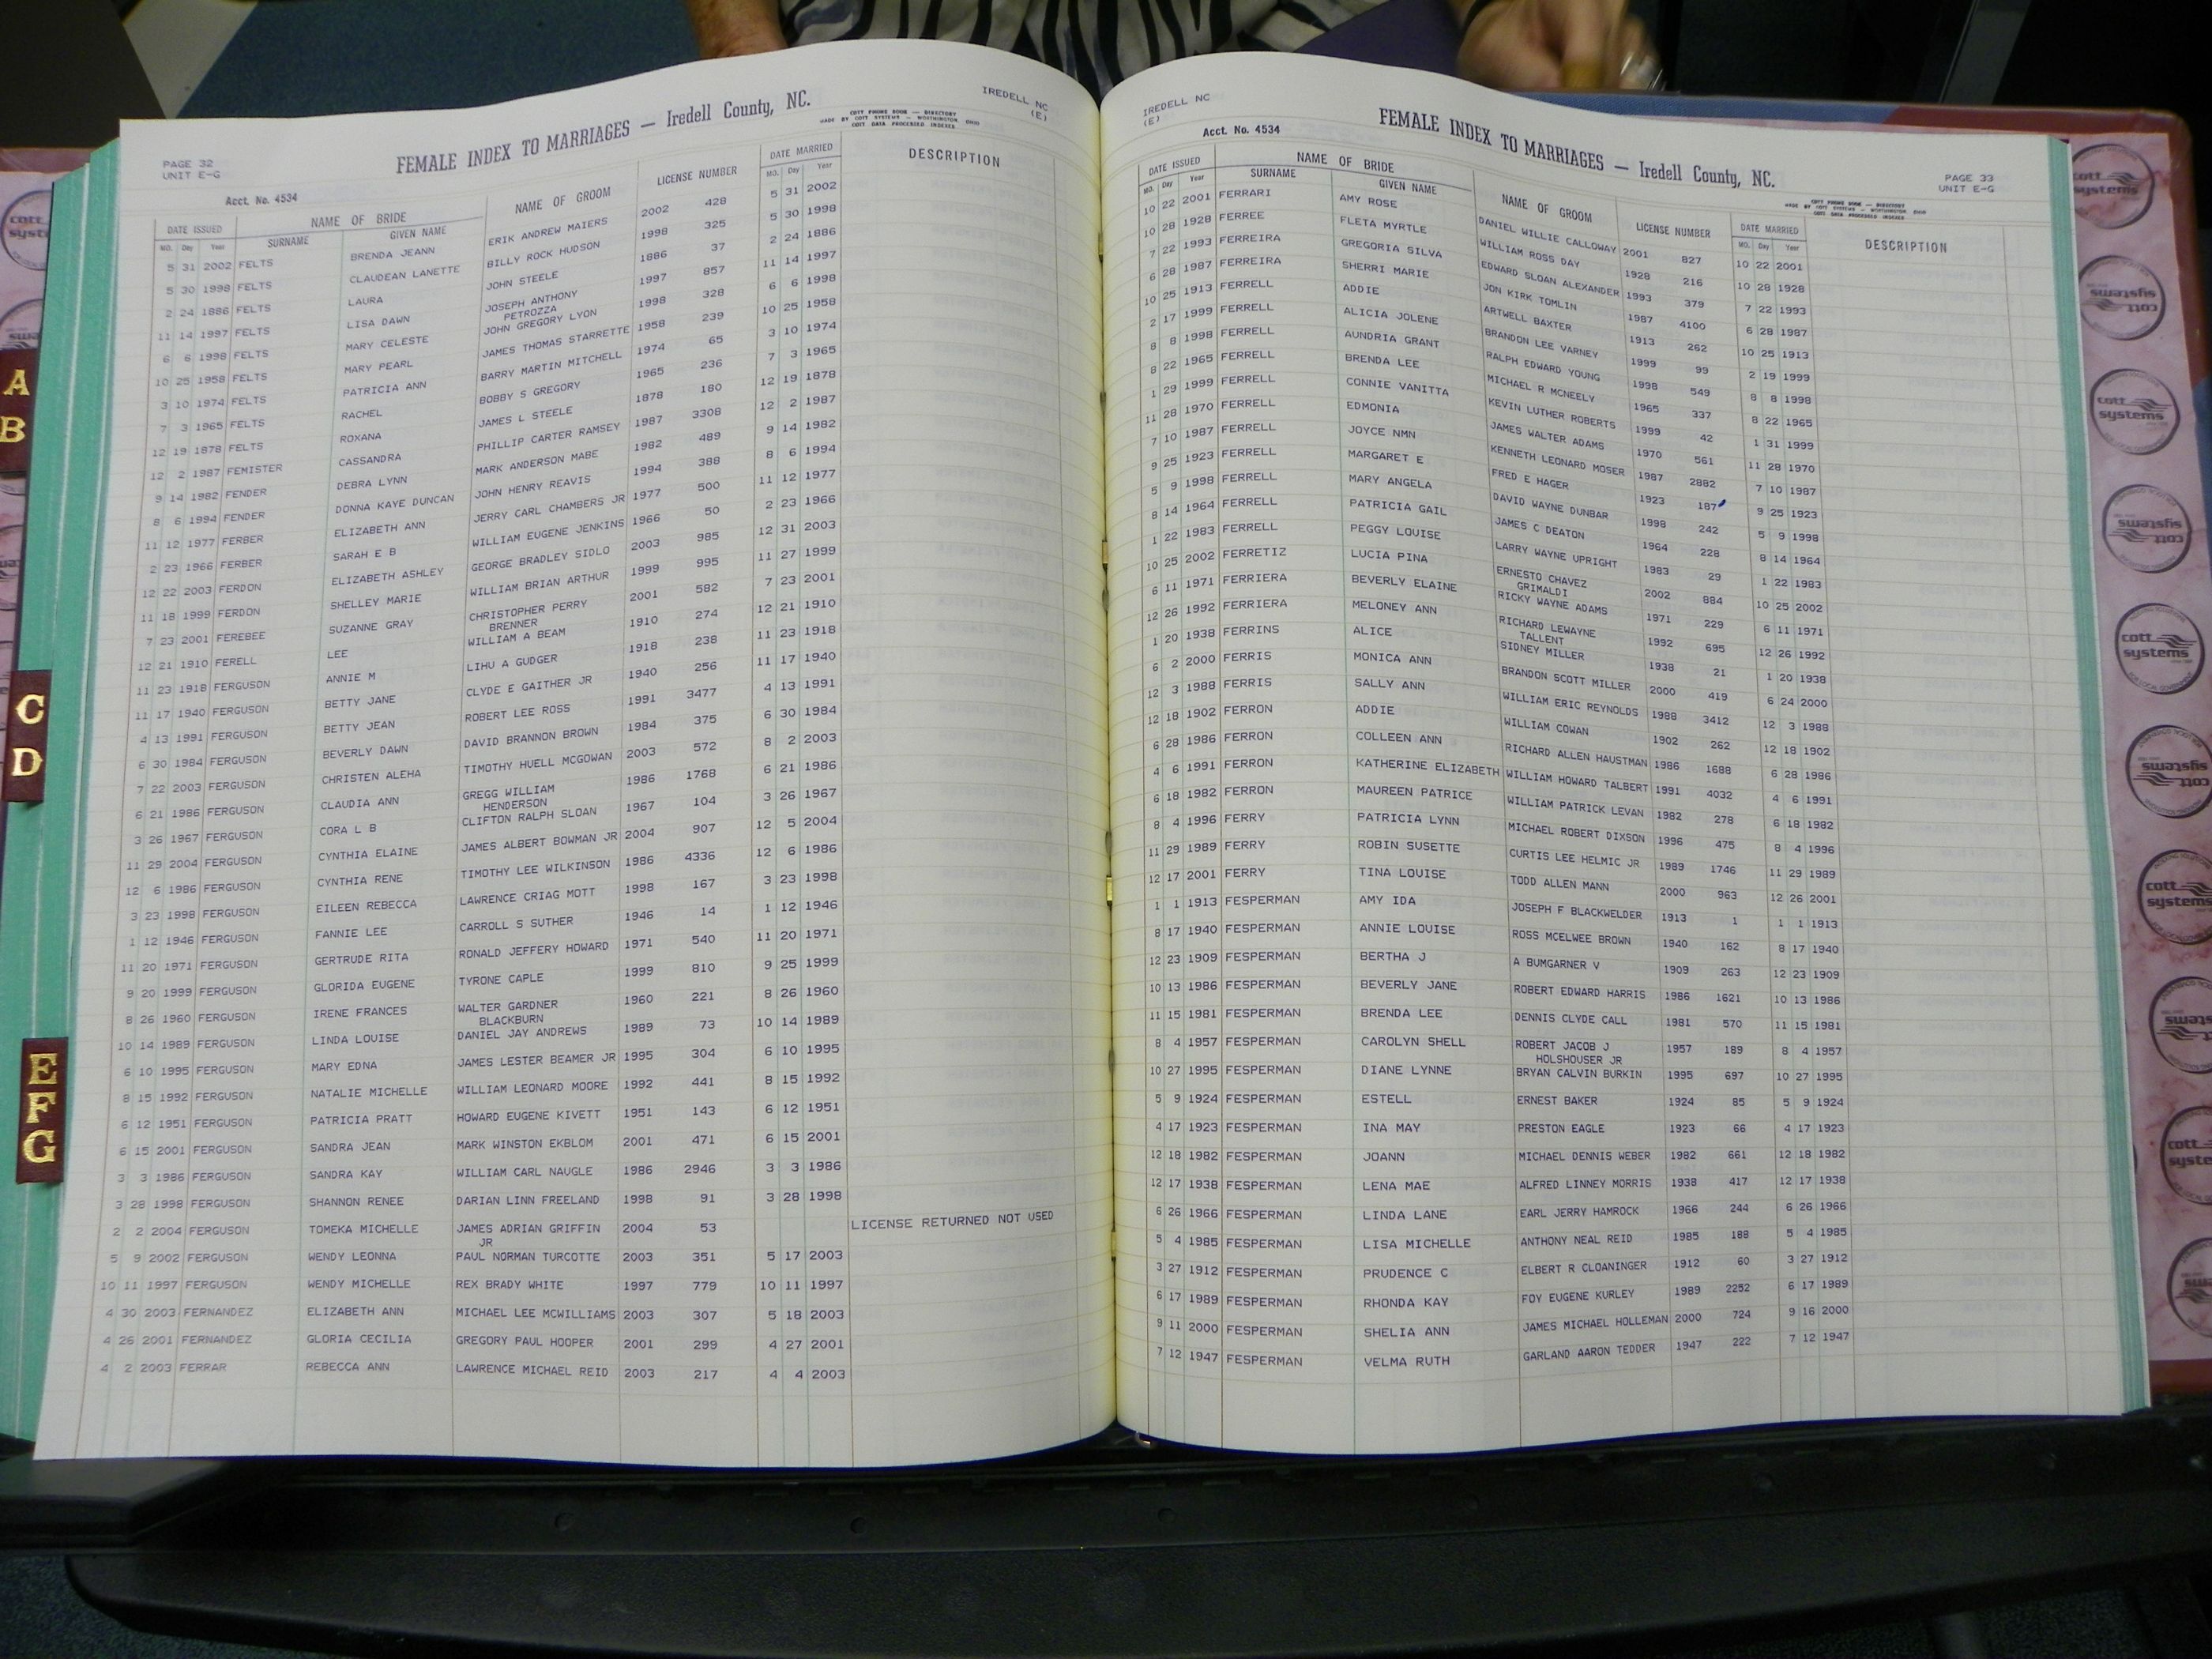 IREDELL NC
(E)
FEMALE INDEX TO MARRIAGES — Iredell County, NC.
COTT PHONE BOOK — DIRECTORY
MADE BY COTT SYSTEMS — WORTHINGTON OHIO
COTT DATA PROCESSED INDEXES
PAGE 32
UNIT E-G
Acct. No. 4534
DATE ISSUED NAME OF BRIDE NAME OF GROOM LICENSE NUMBER DATE MARRIED DESCRIPTION
MO. Day Year SURNAME GIVEN NAME MO. Day Year
5 31 2002 FELTS BRENDA JEANN ERIK ANDREW MAIERS 2002 428 5 31 2002
5 30 1998 FELTS CLAUDEAN LANETTE BILLY ROCK HUDSON 1998 325 5 30 1998
2 24 1886 FELTS LAURA JOHN STEELE 1886 37 2 24 1886
11 14 1997 FELTS LISA DAWN JOSEPH ANTHONY 1997 857 11 14 1997
PETROZZA
6 6 1998 FELTS MARY CELESTE JOHN GREGORY LYON 1998 328 6 6 1998
10 25 1958 FELTS MARY PEARL JAMES THOMAS STARRETTE 1958 239 10 25 1958
3 10 1974 FELTS PATRICIA ANN BARRY MARTIN MITCHELL 1974 65 3 10 1974
7 3 1965 FELTS RACHEL BOBBY S GREGORY 1965 236 7 3 1965
12 19 1878 FELTS ROXANA JAMES L STEELE 1878 180 12 19 1878
12 2 1987 FEMISTER CASSANDRA PHILLIP CARTER RAMSEY 1987 3308 12 2 1987
9 14 1982 FENDER DEBRA LYNN MARK ANDERSON MABE 1982 489 9 14 1982
8 6 1994 FENDER DONNA KAYE DUNCAN JOHN HENRY REAVIS 1994 388 8 6 1994
11 12 1977 FERBER ELIZABETH ANN JERRY CARL CHAMBERS JR 1977 500 11 12 1977
2 23 1966 FERBER SARAH E B WILLIAM EUGENE JENKINS 1966 50 2 23 1966
12 22 2003 FERDON ELIZABETH ASHLEY GEORGE BRADLEY SIDLO 2003 985 12 31 2003
11 18 1999 FERDON SHELLEY MARIE WILLIAM BRIAN ARTHUR 1999 995 11 27 1999
7 23 2001 FEREBEE SUZANNE GRAY CHRISTOPHER PERRY 2001 582 7 23 2001
BRENNER
12 21 1910 FERELL LEE WILLIAM A BEAM 1910 274 12 21 1910
11 23 1918 FERGUSON ANNIE M LIHU A GUDGER 1918 238 11 23 1918
11 17 1940 FERGUSON BETTY JANE CLYDE E GAITHER JR 1940 256 11 17 1940
4 13 1991 FERGUSON BETTY JEAN ROBERT LEE ROSS 1991 3477 4 13 1991
6 30 1984 FERGUSON BEVERLY DAWN DAVID BRANNON BROWN 1984 375 6 30 1984
7 22 2003 FERGUSON CHRISTEN ALEHA TIMOTHY HUELL MCGOWAN 2003 572 8 2 2003
6 21 1986 FERGUSON CLAUDIA ANN GREGG WILLIAM 1986 1768 6 21 1986
HENDERSON
3 26 1967 FERGUSON CORA L B CLIFTON RALPH SLOAN 1967 104 3 26 1967
11 29 2004 FERGUSON CYNTHIA ELAINE JAMES ALBERT BOWMAN JR 2004 907 12 5 2004
12 6 1986 FERGUSON CYNTHIA RENE TIMOTHY LEE WILKINSON 1986 4336 12 6 1986
3 23 1998 FERGUSON EILEEN REBECCA LAWRENCE CRIAG MOTT 1998 167 3 23 1998
1 12 1946 FERGUSON FANNIE LEE CARROLL S SUTHER 1946 14 1 12 1946
11 20 1971 FERGUSON GERTRUDE RITA RONALD JEFFERY HOWARD 1971 540 11 20 1971
9 20 1999 FERGUSON GLORIDA EUGENE TYRONE CAPLE 1999 810 9 25 1999
8 26 1960 FERGUSON IRENE FRANCES WALTER GARDNER 1960 221 8 26 1960
BLACKBURN
10 14 1989 FERGUSON LINDA LOUISE DANIEL JAY ANDREWS 1989 73 10 14 1989
6 10 1995 FERGUSON MARY EDNA JAMES LESTER BEAMER JR 1995 304 6 10 1995
8 15 1992 FERGUSON NATALIE MICHELLE WILLIAM LEONARD MOORE 1992 441 8 15 1992
6 12 1951 FERGUSON PATRICIA PRATT HOWARD EUGENE KIVETT 1951 143 6 12 1951
6 15 2001 FERGUSON SANDRA JEAN MARK WINSTON EKBLOM 2001 471 6 15 2001
3 3 1986 FERGUSON SANDRA KAY WILLIAM CARL NAUGLE 1986 2946 3 3 1986
3 28 1998 FERGUSON SHANNON RENEE DARIAN LINN FREELAND 1998 91 3 28 1998
2 2 2004 FERGUSON TOMEKA MICHELLE JAMES ADRIAN GRIFFIN 2004 53 LICENSE RETURNED NOT USED
JR
5 9 2002 FERGUSON WENDY LEONNA PAUL NORMAN TURCOTTE 2003 351 5 17 2003
10 11 1997 FERGUSON WENDY MICHELLE REX BRADY WHITE 1997 779 10 11 1997
4 30 2003 FERNANDEZ ELIZABETH ANN MICHAEL LEE MCWILLIAMS 2003 307 5 18 2003
4 26 2001 FERNANDEZ GLORIA CECILIA GREGORY PAUL HOOPER 2001 299 4 27 2001
4 2 2003 FERRAR REBECCA ANN LAWRENCE MICHAEL REID 2003 217 4 4 2003
IREDELL NC
(E)
Acct. No. 4534
FEMALE INDEX TO MARRIAGES — Iredell County, NC.
COTT PHONE BOOK — DIRECTORY
MADE BY COTT SYSTEMS — WORTHINGTON OHIO
COTT DATA PROCESSED INDEXES
PAGE 33
UNIT E-G
DATE ISSUED NAME OF BRIDE NAME OF GROOM LICENSE NUMBER DATE MARRIED DESCRIPTION
MO. Day Year SURNAME GIVEN NAME MO. Day Year
10 22 2001 FERRARI AMY ROSE DANIEL WILLIE CALLOWAY 2001 827 10 22 2001
10 28 1928 FERREE FLETA MYRTLE WILLIAM ROSS DAY 1928 216 10 28 1928
7 22 1993 FERREIRA GREGORIA SILVA EDWARD SLOAN ALEXANDER 1993 379 7 22 1993
6 28 1987 FERREIRA SHERRI MARIE JON KIRK TOMLIN 1987 4100 6 28 1987
10 25 1913 FERRELL ADDIE ARTWELL BAXTER 1913 262 10 25 1913
2 17 1999 FERRELL ALICIA JOLENE BRANDON LEE VARNEY 1999 99 2 19 1999
8 8 1998 FERRELL AUNDRIA GRANT RALPH EDWARD YOUNG 1998 549 8 8 1998
8 22 1965 FERRELL BRENDA LEE MICHAEL R MCNEELY 1965 337 8 22 1965
1 29 1999 FERRELL CONNIE VANITTA KEVIN LUTHER ROBERTS 1999 42 1 31 1999
11 28 1970 FERRELL EDMONIA JAMES WALTER ADAMS 1970 561 11 28 1970
7 10 1987 FERRELL JOYCE NMN KENNETH LEONARD MOSER 1987 2882 7 10 1987
9 25 1923 FERRELL MARGARET E FRED E HAGER 1923 187 9 25 1923
5 9 1998 FERRELL MARY ANGELA DAVID WAYNE DUNBAR 1998 242 5 9 1998
8 14 1964 FERRELL PATRICIA GAIL JAMES C DEATON 1964 228 8 14 1964
1 22 1983 FERRELL PEGGY LOUISE LARRY WAYNE UPRIGHT 1983 29 1 22 1983
10 25 2002 FERRETIZ LUCIA PINA ERNESTO CHAVEZ 2002 884 10 25 2002
GRIMALDI
6 11 1971 FERRIERA BEVERLY ELAINE RICKY WAYNE ADAMS 1971 229 6 11 1971
12 26 1992 FERRIERA MELONEY ANN RICHARD LEWAYNE 1992 695 12 26 1992
TALLENT
1 20 1938 FERRINS ALICE SIDNEY MILLER 1938 21 1 20 1938
6 2 2000 FERRIS MONICA ANN BRANDON SCOTT MILLER 2000 419 6 24 2000
12 3 1988 FERRIS SALLY ANN WILLIAM ERIC REYNOLDS 1988 3412 12 3 1988
12 18 1902 FERRON ADDIE WILLIAM COWAN 1902 262 12 18 1902
6 28 1986 FERRON COLLEEN ANN RICHARD ALLEN HAUSTMAN 1986 1688 6 28 1986
4 6 1991 FERRON KATHERINE ELIZABETH WILLIAM HOWARD TALBERT 1991 4032 4 6 1991
6 18 1982 FERRON MAUREEN PATRICE WILLIAM PATRICK LEVAN 1982 278 6 18 1982
8 4 1996 FERRY PATRICIA LYNN MICHAEL ROBERT DIXSON 1996 475 8 4 1996
11 29 1989 FERRY ROBIN SUSETTE CURTIS LEE HELMIC JR 1989 1746 11 29 1989
12 17 2001 FERRY TINA LOUISE TODD ALLEN MANN 2000 963 12 26 2001
1 1 1913 FESPERMAN AMY IDA JOSEPH F BLACKWELDER 1913 1 1 1 1913
8 17 1940 FESPERMAN ANNIE LOUISE ROSS MCELWEE BROWN 1940 162 8 17 1940
12 23 1909 FESPERMAN BERTHA J A BUMGARNER V 1909 263 12 23 1909
10 13 1986 FESPERMAN BEVERLY JANE ROBERT EDWARD HARRIS 1986 1621 10 13 1986
11 15 1981 FESPERMAN BRENDA LEE DENNIS CLYDE CALL 1981 570 11 15 1981
8 4 1957 FESPERMAN CAROLYN SHELL ROBERT JACOB J 1957 189 8 4 1957
HOLSHOUSER JR
10 27 1995 FESPERMAN DIANE LYNNE BRYAN CALVIN BURKIN 1995 697 10 27 1995
5 9 1924 FESPERMAN ESTELL ERNEST BAKER 1924 85 5 9 1924
4 17 1923 FESPERMAN INA MAY PRESTON EAGLE 1923 66 4 17 1923
12 18 1982 FESPERMAN JOANN MICHAEL DENNIS WEBER 1982 661 12 18 1982
12 17 1938 FESPERMAN LENA MAE ALFRED LINNEY MORRIS 1938 417 12 17 1938
6 26 1966 FESPERMAN LINDA LANE EARL JERRY HAMROCK 1966 244 6 26 1966
5 4 1985 FESPERMAN LISA MICHELLE ANTHONY NEAL REID 1985 188 5 4 1985
3 27 1912 FESPERMAN PRUDENCE C ELBERT R CLOANINGER 1912 60 3 27 1912
6 17 1989 FESPERMAN RHONDA KAY FOY EUGENE KURLEY 1989 2252 6 17 1989
9 11 2000 FESPERMAN SHELIA ANN JAMES MICHAEL HOLLEMAN 2000 724 9 16 2000
7 12 1947 FESPERMAN VELMA RUTH GARLAND AARON TEDDER 1947 222 7 12 1947
A
B
C
D
E
F
G
cott
systems
cott
systems
cott
systems
cott
systems